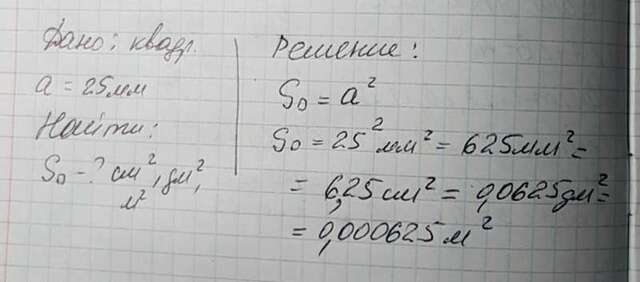 Дано: квадр.
a = 25мм
Найти:
S₀ - ? см², дм²,
м²
Решение:
S₀ = a²
S₀ = 25² мм² = 625мм² =
= 6,25 см² = 0,0625 дм² =
= 0,000625 м²